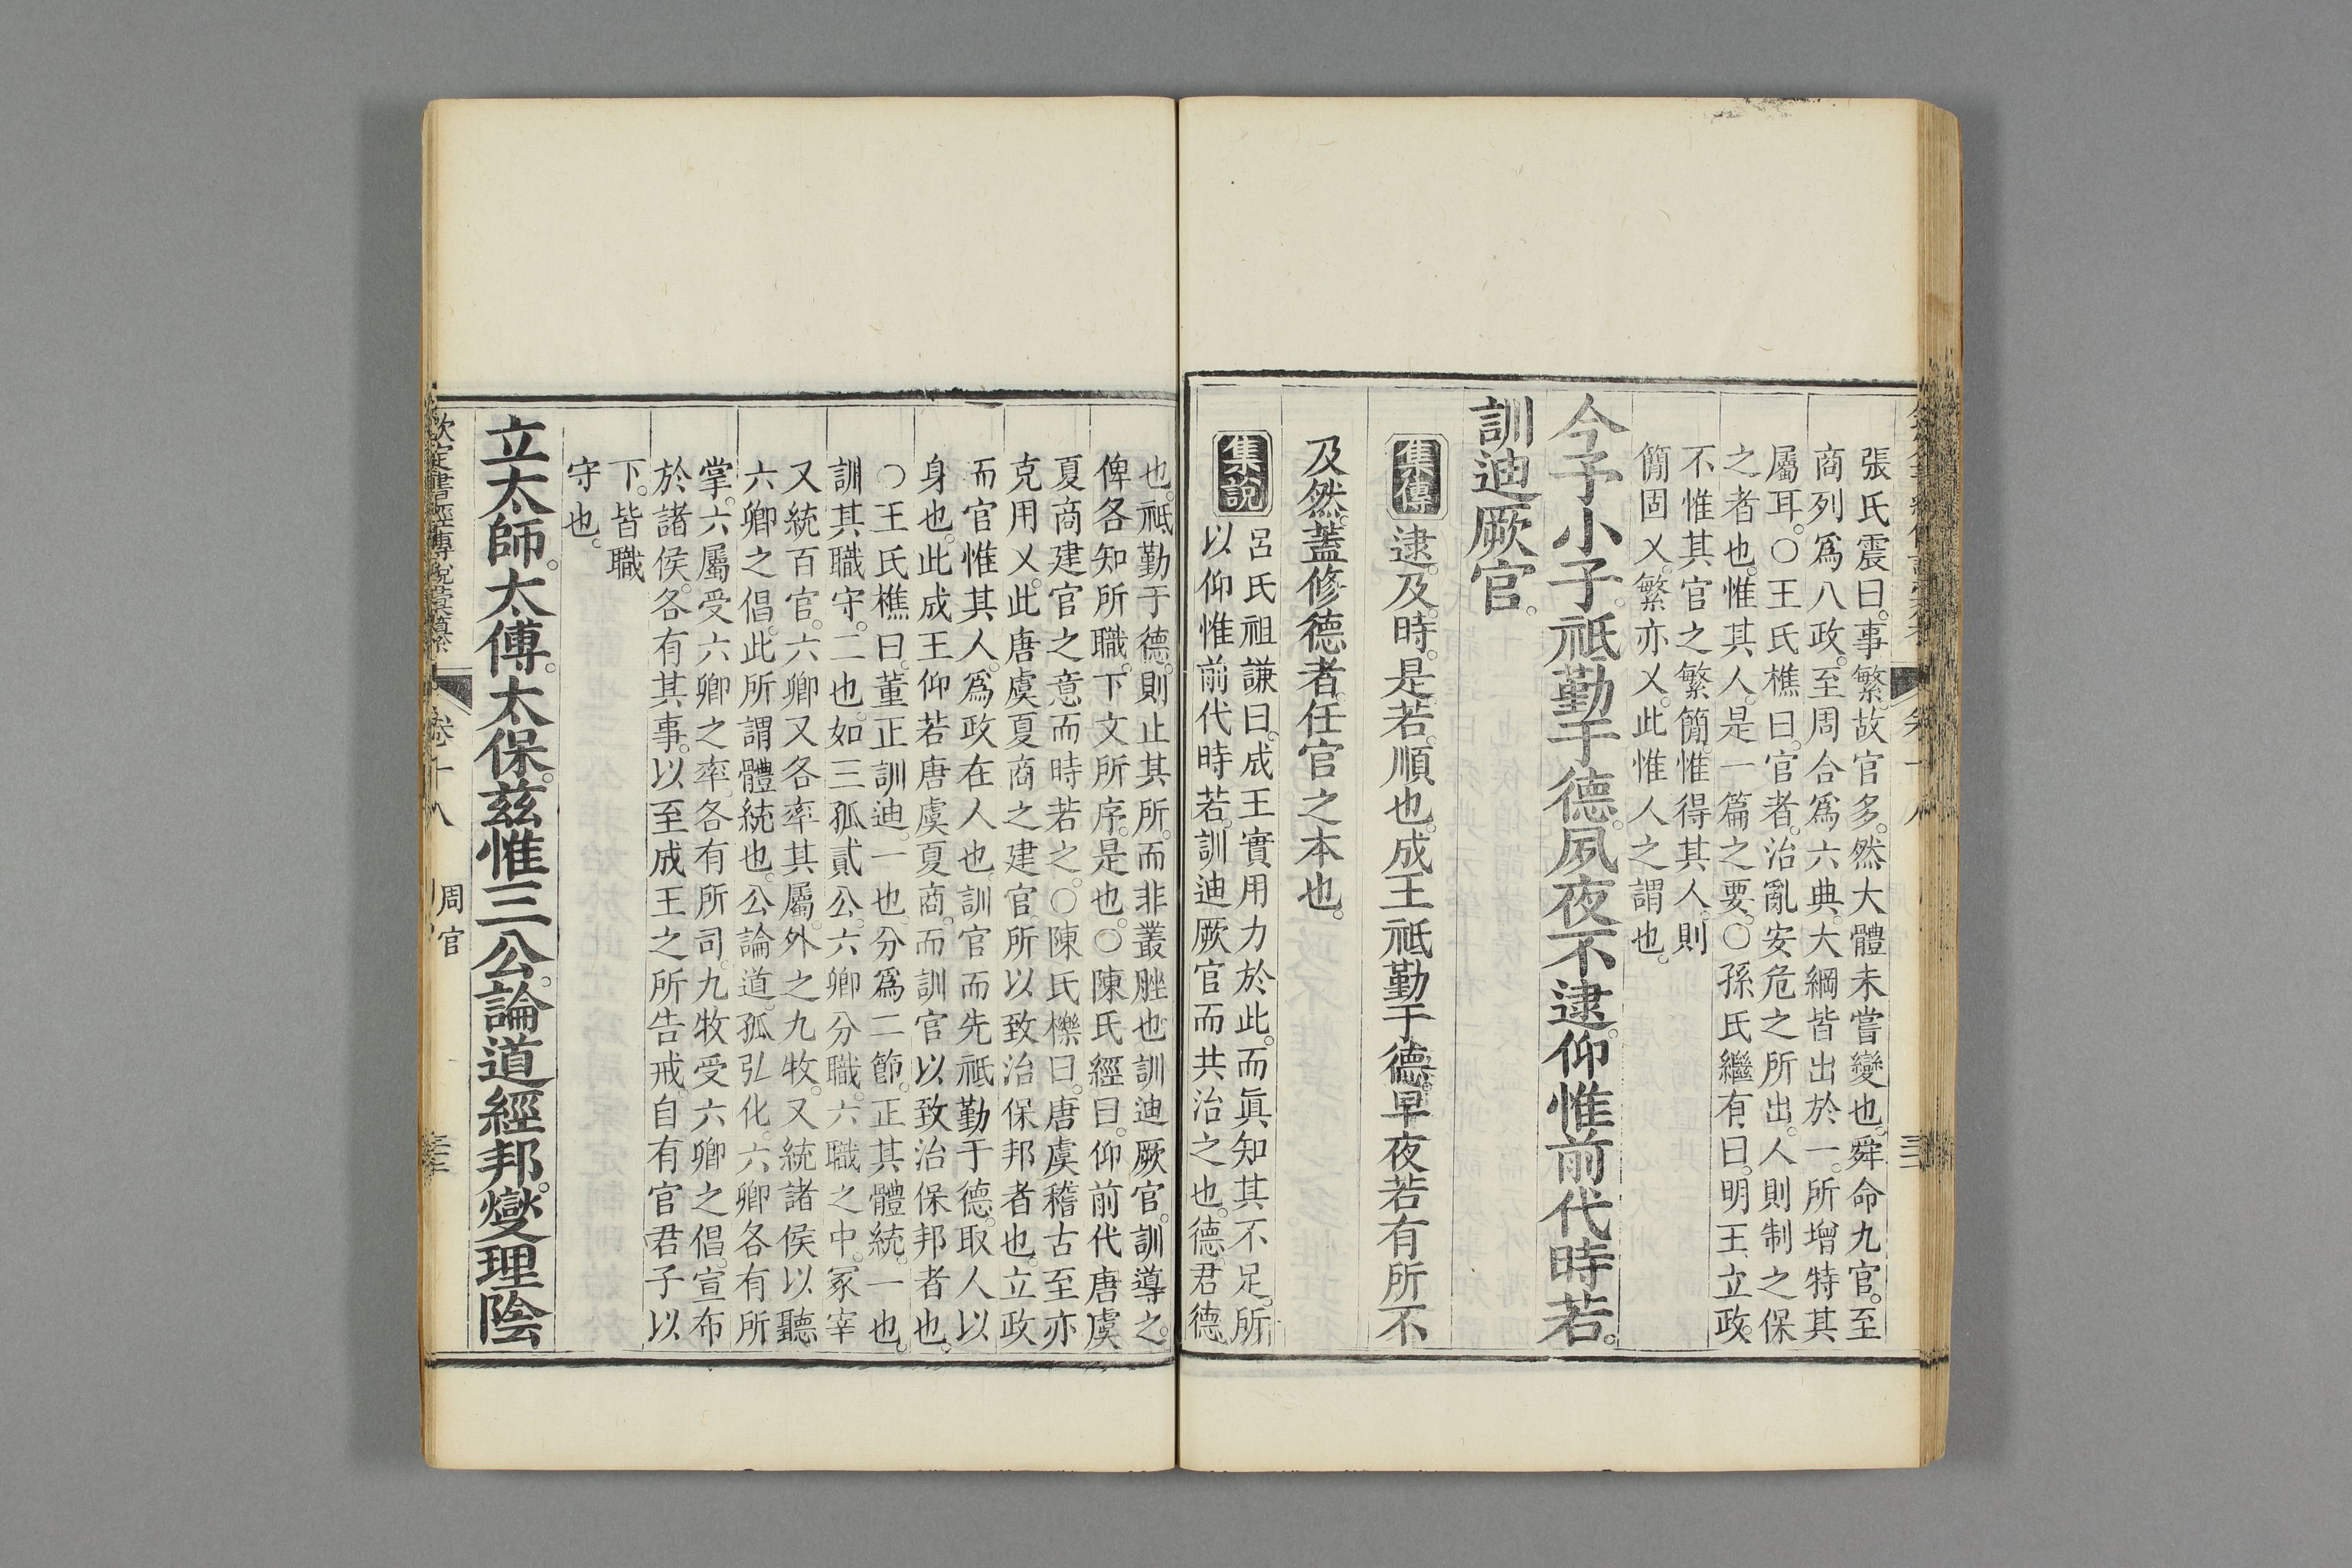 張氏震曰。事繁。故官多。然大體未嘗變也。舜命九官。至
商列爲八政。至周合爲六典。大綱皆出於一。所增特其
屬耳。○王氏樵曰。官者。治亂安危之所出。人則制之保
之者也。惟其人。是一篇之要。○孫氏繼有曰。明王立政。
不惟其官之繁簡。惟得其人。則
簡固乂。繁亦乂。此惟人之謂也。
今予小子。祗勤于德。夙夜不逮。仰惟前代時若。
訓迪厥官。
集傳 逮。及。時。是。若。順也。成王祗勤于德。早夜若有所不
及然。蓋修德者。任官之本也。
集說 呂氏祖謙曰。成王實用力於此。而眞知其不足。所
以仰惟前代時若。訓迪厥官而共治之也。德。君德
也。祗勤于德。則止其所。而非叢脞也。訓迪厥官。訓導之。
俾各知所職。下文所序。是也。○陳氏經曰。仰前代唐虞
夏商建官之意而時若之。○陳氏櫟曰。唐虞稽古至亦
克用乂。此唐虞夏商之建官。所以致治保邦者也。立政
而官惟其人。爲政在人也。訓官而先祗勤于德。取人以
身也。此成王仰若唐虞夏商。而訓官以致治保邦者也。
○王氏樵曰。董正訓迪。一也。分爲二節。正其體統。一也。
訓其職守。二也。如三孤貳公。六卿分職。六職之中。冢宰
又統百官。六卿又各率其屬。外之九牧。又統諸侯以聽
六卿之倡。此所謂體統也。公論道。孤弘化。六卿各有所
掌。六屬受六卿之率。各有所司。九牧受六卿之倡。宣布
於諸侯。各有其事。以至成王之所告戒。自有官君子以
下。皆職
守也。
立太師。太傅。太保。茲惟三公。論道經邦。燮理陰
欽定書經傳說彙纂 卷十八 周官